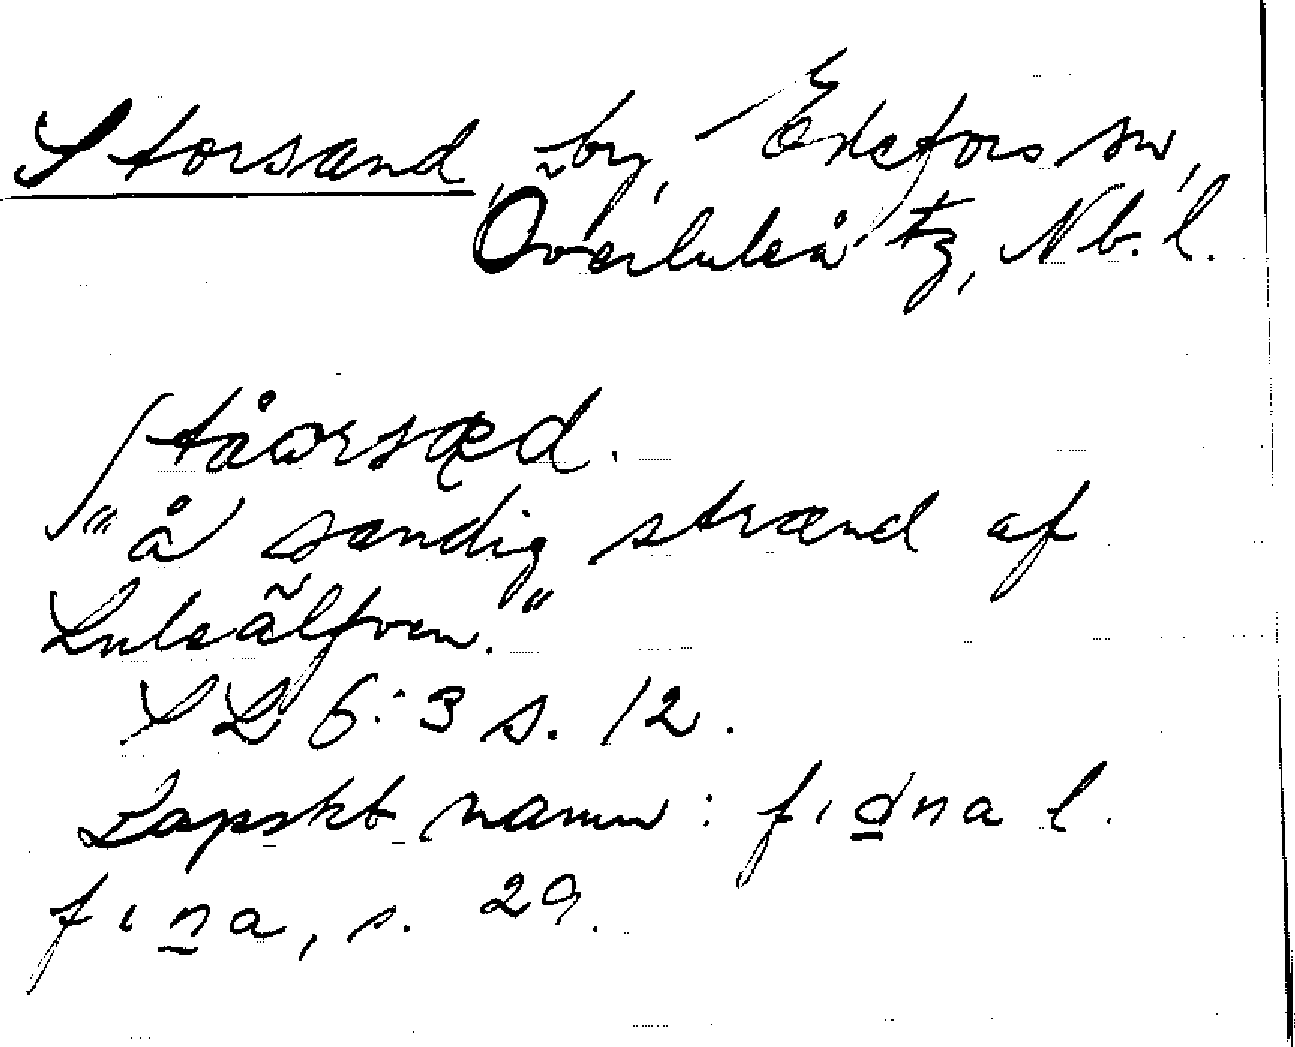 Storsand, by, Edefors sn,
Överluleå tg, Nb. l.
ståorsæd.
"å sandig strand af
Luleälfven."
SL 6:3 s. 12.
Lapskt namn: fıd̲na l.
fın̲a, s. 29.